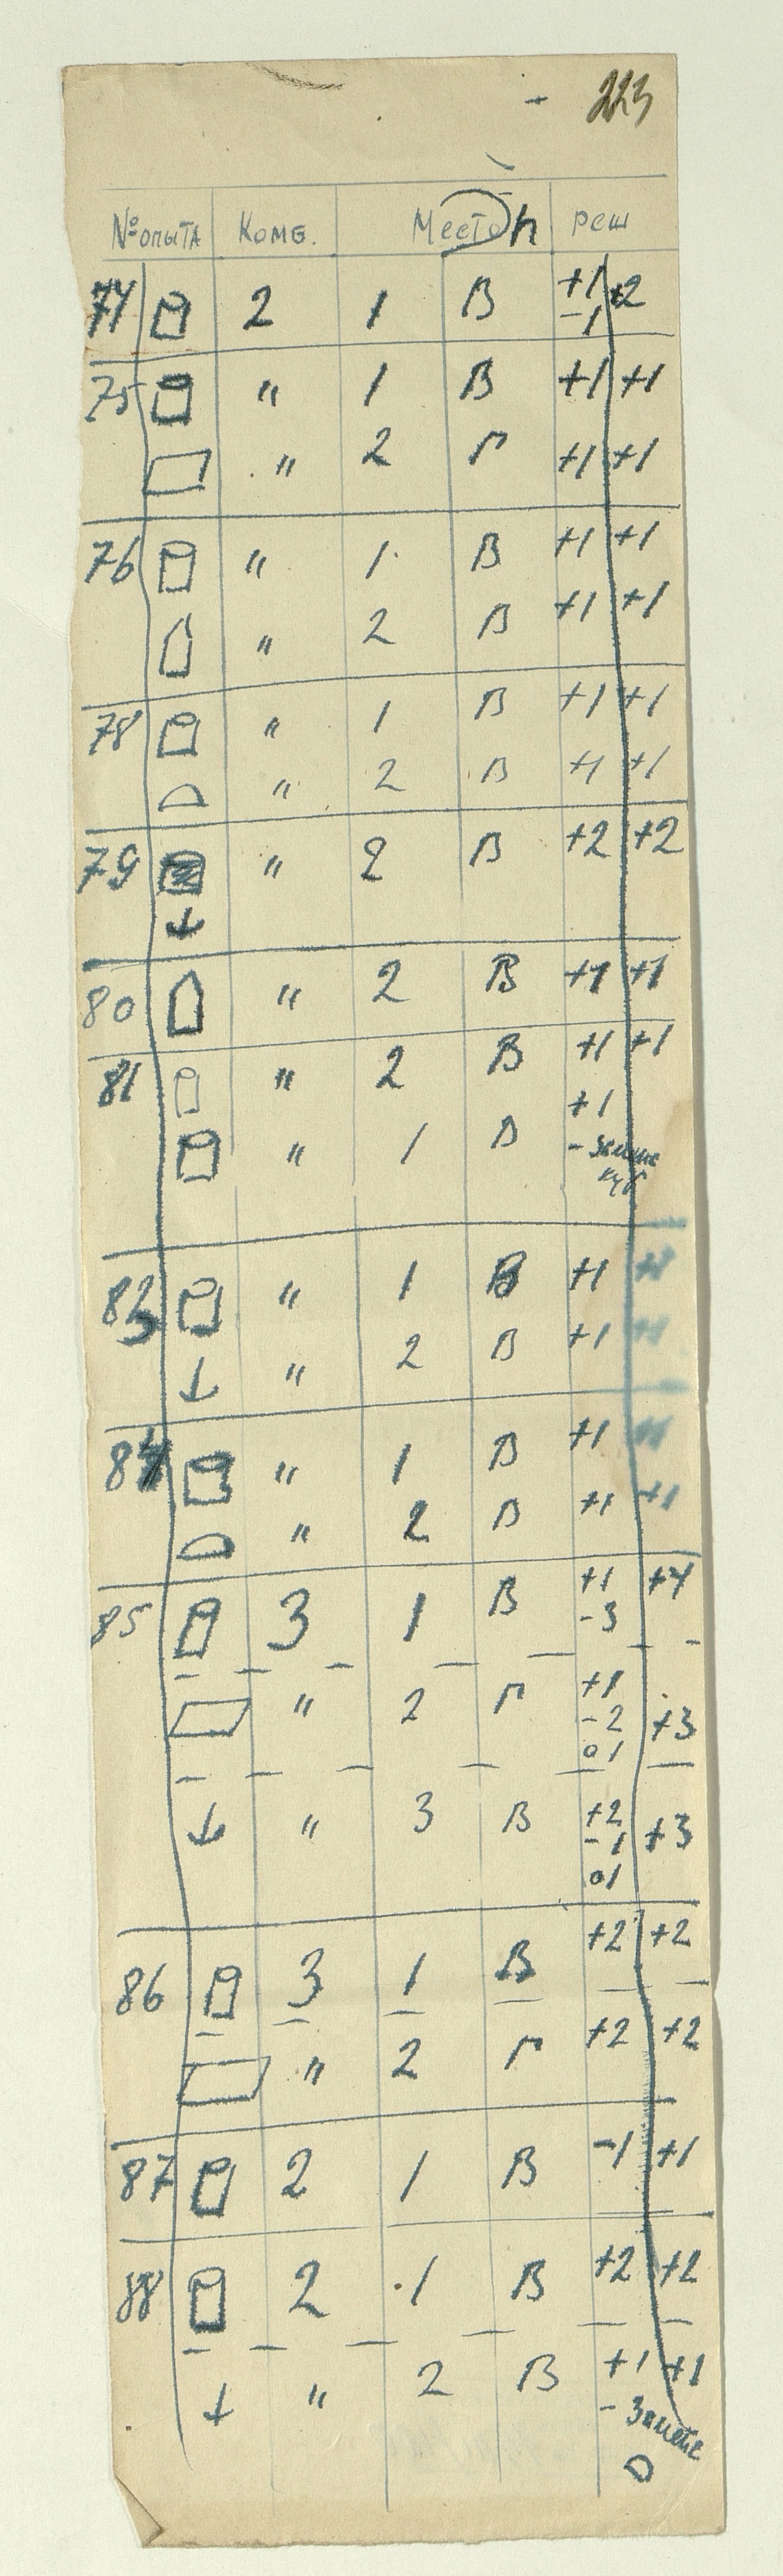 223
№ опыта Комб. Место h реш
74 2 1 В +1 +2
-1
75 " 1 В +1 +1
" 2 Г +1 +1
76 " 1 В +1 +1
" 2 В +1 +1
78 " 1 В +1 +1
" 2 В +1 +1
79 " 2 В +2 +2
80 " 2 В +1 +1
81 " 2 В +1 +1
+1
" 1 В -
куб
83 " 1 В +1
" 2 В +1
84 " 1 В +1
" 2 В +1 +1
85 3 1 В +1 +4
-3
" 2 Г +1
-2 +3
01
" 3 В +2
-1 +3
01
86 3 1 В +2 +2
" 2 Г +2 +2
87 2 1 В -1 +1
88 2 1 В +2 +2
" 2 В +1 +1
-